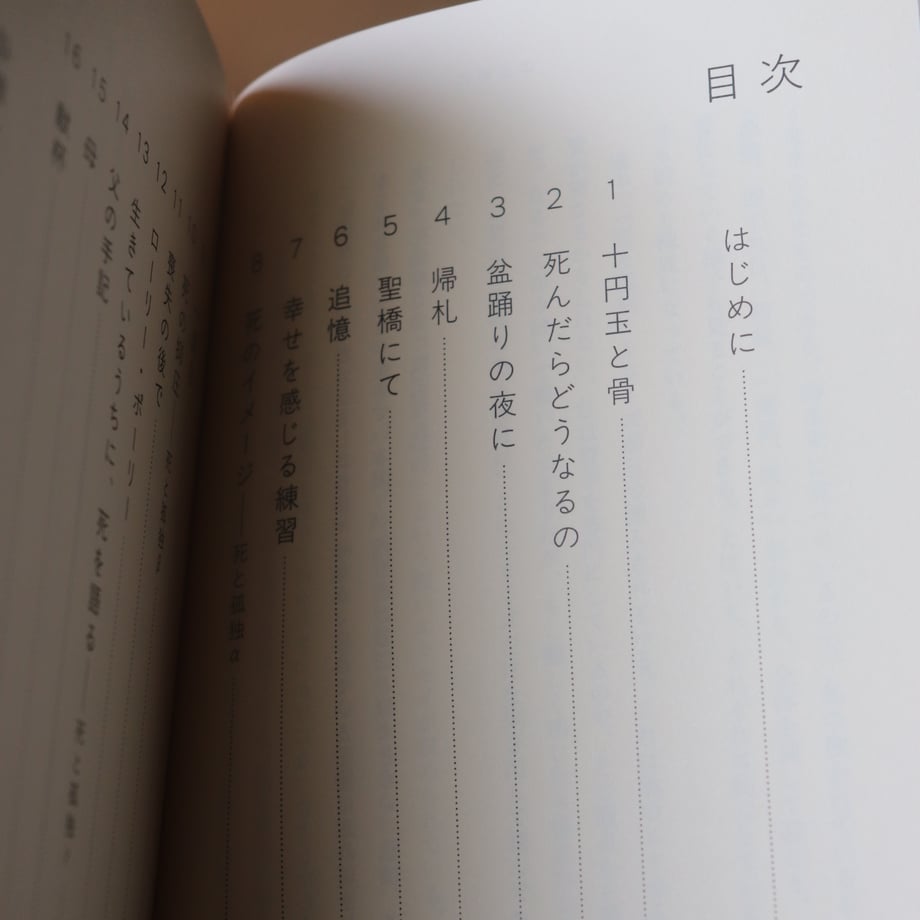 目次
はじめに
1 十円玉と骨
2 死んだらどうなるの
3 盆踊りの夜に
4 帰札
5 聖橋にて
6 追憶
7 幸せを感じる練習
8 死のイメージ――死と孤独α
10
11 の後で
12 ローリー・ポーリー
13 生きているうちに、死を
14 父の手記
15 母
16